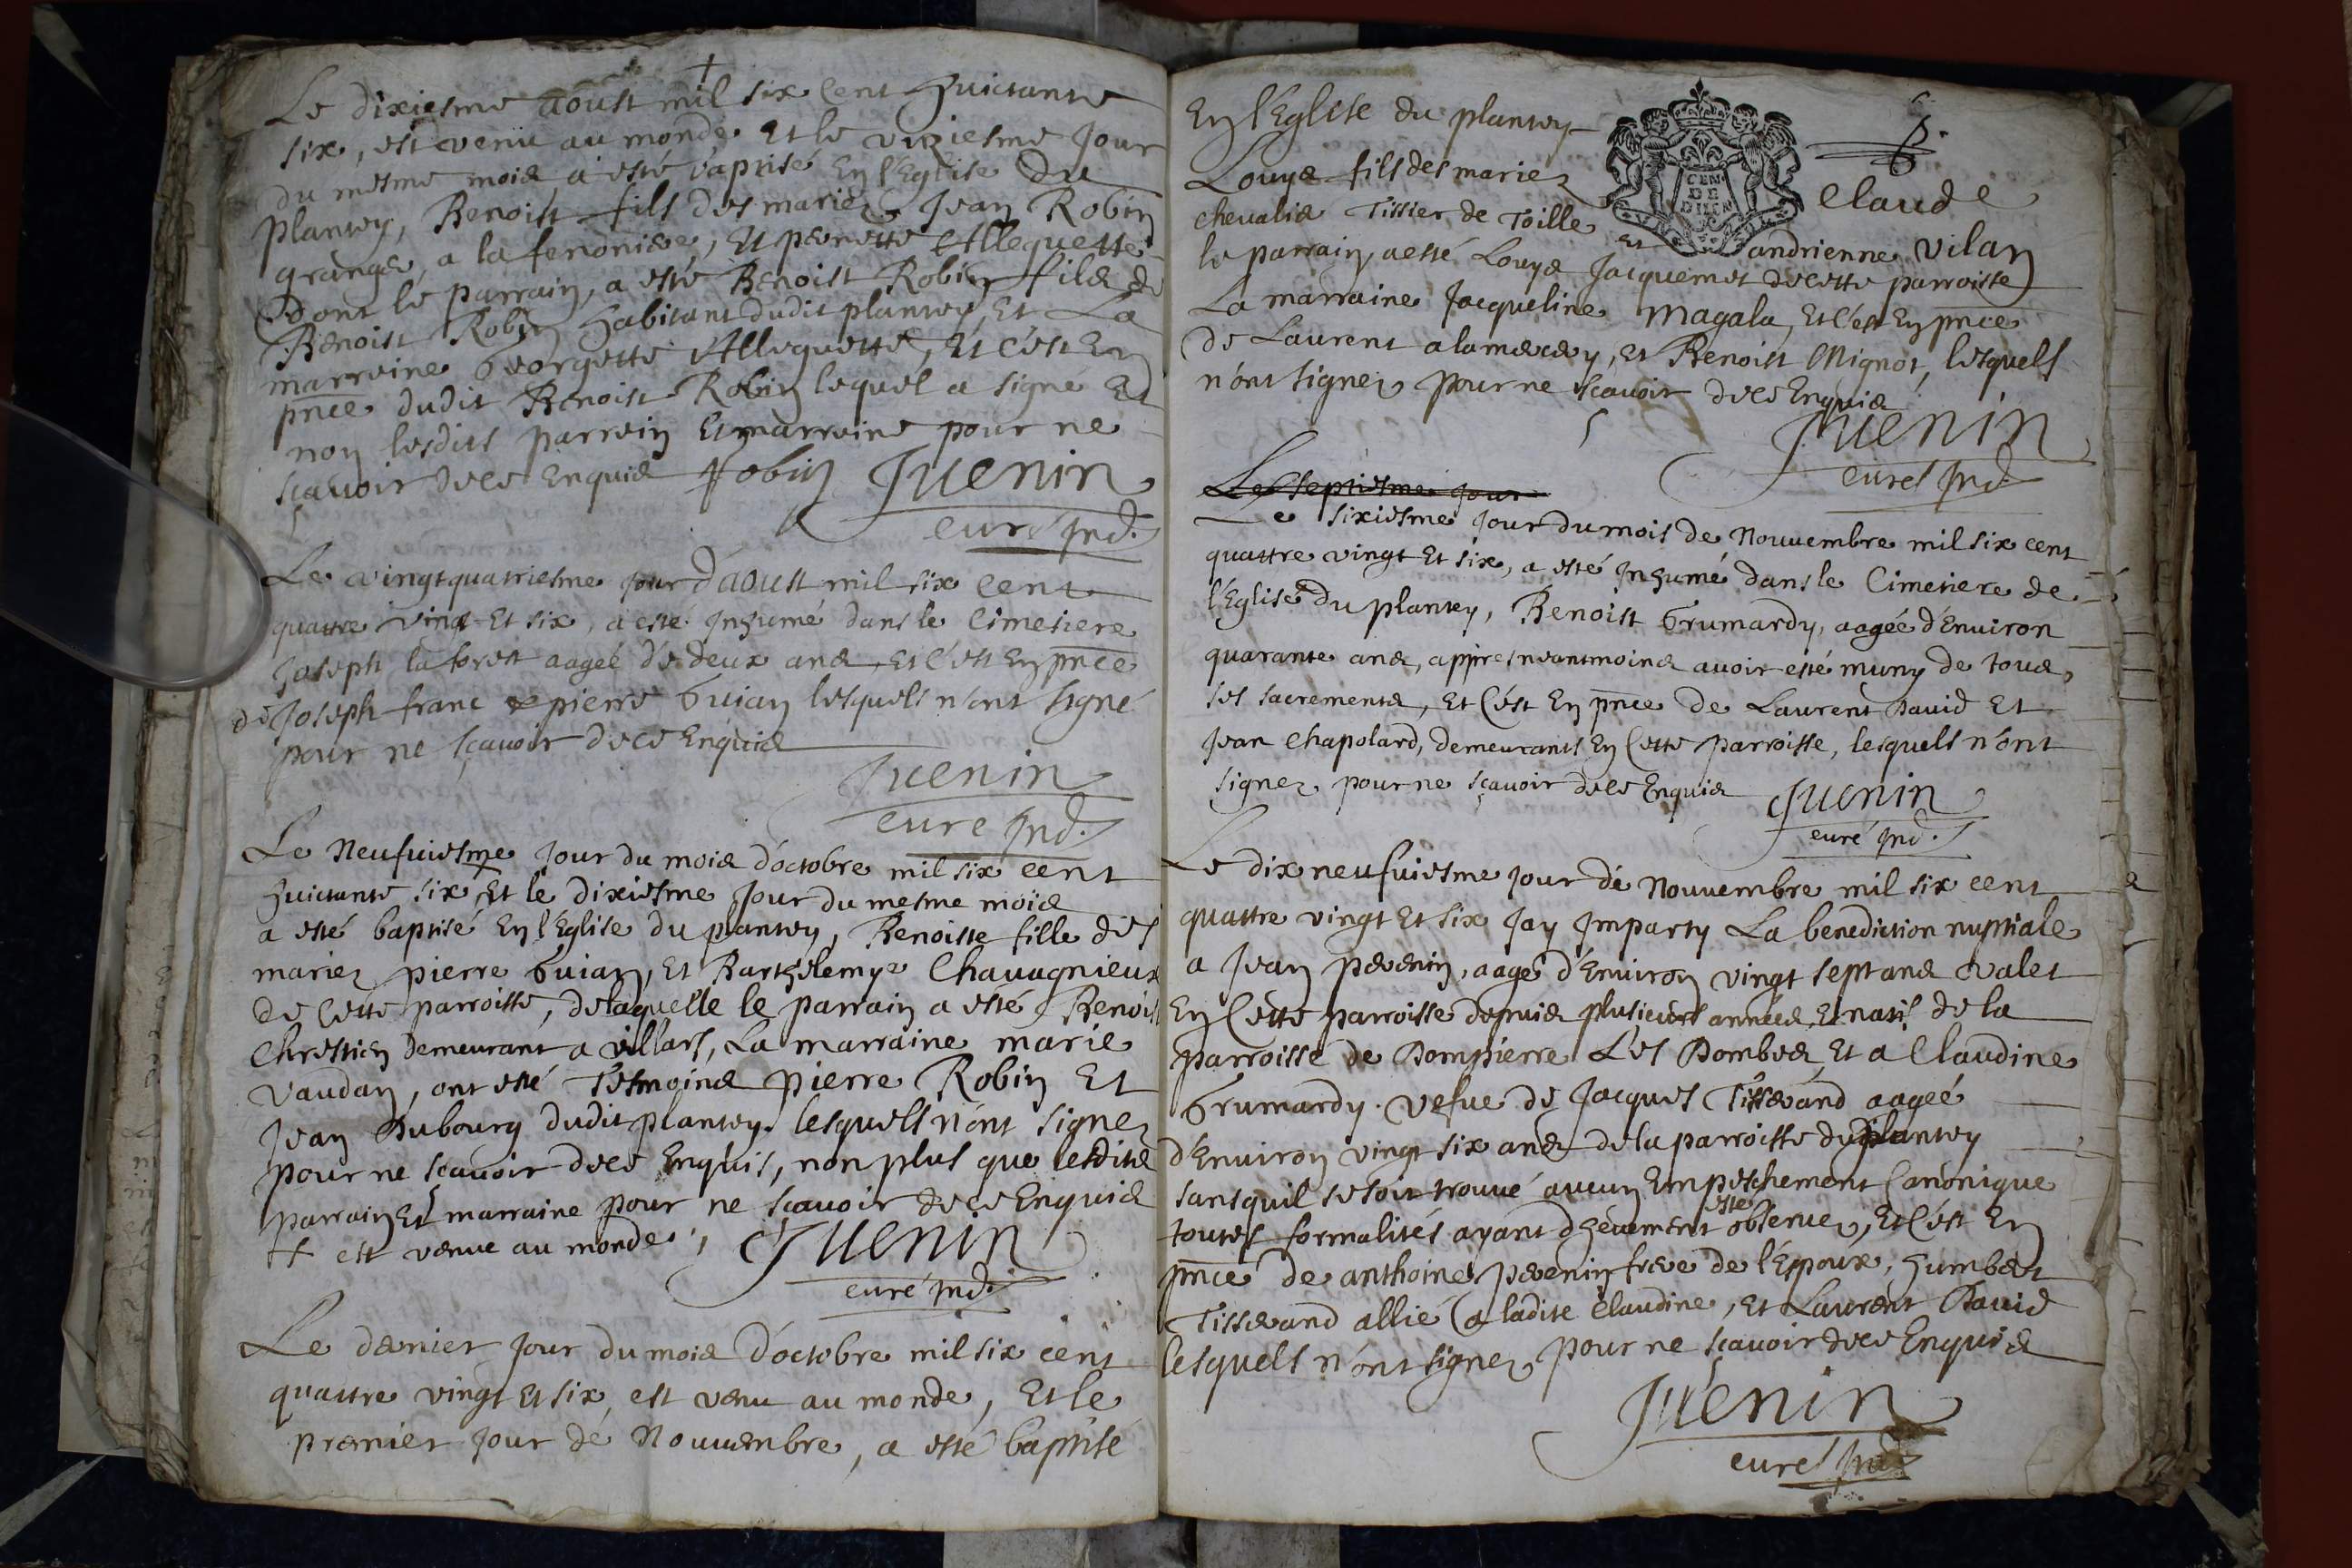 Le dixiesme aoust mil six cent huictante
six, est venu au monde et le unziesme Jour
du mesme mois a esté baptisé En l'Eglise du
plantey, Benoist fils des mariez Jean Robin
granger, a la fenoniere, Et pernette Allequette
dont le parrain, a esté Benoist Robin fils de
Benoist Robin habitant dudit plantey, Et La
marreine Georgette Allequette, Et c'est En
pnce dudit Benoist Robin lequel a signé Et
non lesdits parrein Et marreine pour ne
scavoir dece Enquis Robin Juenin
curé Ind.
Le vingt quatriesme jour d'aoust mil six cent
quattre vingt Et six, a esté Inhumé dans le Cimetiere
Joseph laforest aagée de deux ans, Et c'est En pnce
de Joseph franc et pierre Guian lesquels n'ont signé
pour ne sçavoir dece Enquis
Juenin
curé Ind.
Le Neufuiesme Jour du mois d'octobre mil six cent
huictante six, Et le dixiesme Jour du mesme mois
a esté baptisé En l'Eglise du plantey, Benoiste fille des
mariez pierre Guian, Et Barthelemye Chauagnieux
de Cette parroisse, delaquelle le parrain a esté Benoist
Chrestien demeurant a villars, La marraine marie
Vaudan, ont esté Tesmoins pierre Robin Et
Jean Dubourg dudit plantey lesquels n'ont signez
pour ne scavoir dece Enquis, non plus que lesdits
parrain Et marraine pour ne scavoir dece Enquis
est venue au monde Juenin
curé Ind.
Le dernier Jour du mois d'octobre mil six cent
quattre vingt Et six, est venu au monde, Et le
premier jour de Nouuembre, a esté baptisé
En l'Eglise du plantey
Louys fils des mariez Claude
chevalis Tissier de Toille Et andrienne Vilan
le parrain a esté Louys Jacquemet decette parroisse
La marraine Jacqueline Magala, Et c'est En pnce
de Laurent alamercery, Et Benoist Mignot, lesquels
n'ont signez pour ne scauoir dece Enquis
Juenin
curé Ind.
Le septiesme jour
e sixiesme Jour du mois de Nouuembre mil six cent
quattre vingt Et six, a esté Inhumé dans le Cimetiere de
l'Eglise du plantey, Benoist Grumardy, aagée d'Enuiron
quarante ans, appres neantmoins auoir esté muny de tous
ses sacrements, Et C'est En pnce de Laurent Dauid Et
Jean Chapolard, demeurants En Cette parroisse, lesquels n'ont
signez pour ne sçauoir dece Enquis Juenin
curé Ind.
Le dix neufuiesme jour de Nouuembre mil six cent
quattre vingt Et six Jay Imparty La benediction nuptiale
a Jean peuenin, aagé d'Enuiron vingt sept ans valet
En Cette parroisse depuis plusieurs années, Et natif de la
parroisse de Dompierre Les Dombes, Et a Claudine
Grumardy vefue de Jacques Tisserand aageé
d'Enuiron vingt six ans de la parroisse du plantey
sansquil se soit trouué aucun Empeschement Canonique
toutes formalités ayant dheuement esté obseruez, Et C'est En
pnce de anthoine peuenin frere de l'Epoux, humbert
Tisserand allié a ladite Claudine, Et Laurent Dauid
lesquels n'ont signez pour ne sçauoir dece Enquis
Juenin
curé Ind.